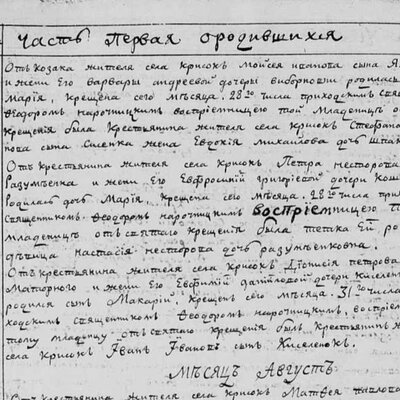 Часть Первая ородившихся
Отъ козака жителя села крисокъ Моисея иванова сына
и жени Его варвары андреевой дочеры виборновни родилась
Марія, крещена сего мѣсяца. 28го числа приходскимъ
Ѳеодоромъ нарочницкимъ востріемницею той младенцъ
крещенія была Крестьянина жителя села крисокъ Стефана
пова сына Силенка жена Евдокія михаилова дочь
Отъ крестьянина жителя села крисокъ Петра нестерова
Разумѣнка и жени Его Евфросиніи григоріевой дочери
Родилась дочь Марія, крещена сего мѣсяца. 28го числа
священникомъ Ѳеодоромъ нарочницкимъ востріемницею
младенцъ отъ святаго крещенія была тетка Ей
дѣвица настасія несторова дочь разумѣнковна.
Отъ крестьянина жителя села крисокъ Діонисія петрова
Маторного и жени Его Евфиміи даниловой дочери
родился сынъ Макарій, крещенъ сего мѣсяца. 31го числа
ходскимъ священникомъ Ѳеодоромъ нарочницкимъ,
тому младенцу отъ святаго крещенія былъ Крестьянинъ
села крисокъ Іванъ Івановъ сынъ Киселенокъ.
Мѣсяцъ Августъ
Отъ крестьянина жителя села крисокъ Матвея павлова